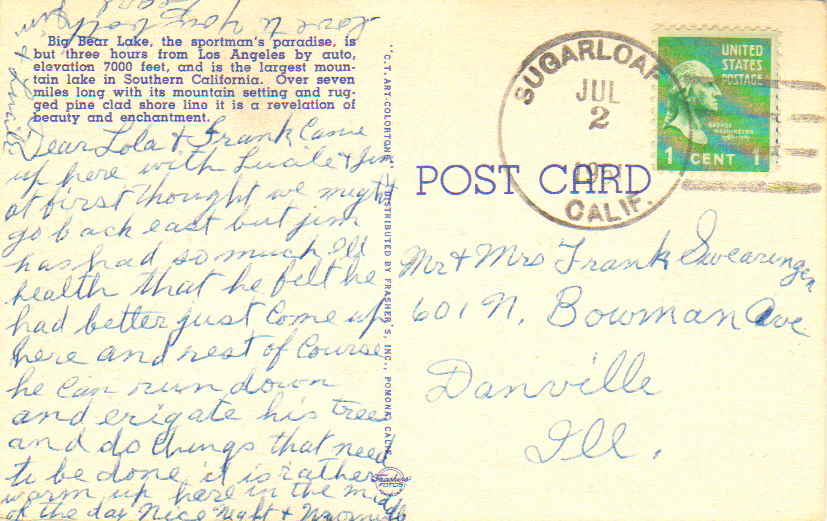 Love to you both
Big Bear Lake, the sportman's paradise, is
but three hours from Los Angeles by auto,
elevation 7000 feet, and is the largest moun-
tain lake in Southern California. Over seven
miles long with its mountain setting and rug-
ged pine clad shore line it is a revelation of
beauty and enchantment.
Dear Lola & Frank Came
up here with Lucile & Jim
at first thought we might
go back east but jim
has had so much Ill
health that he felt he
had better just Come up
here and rest of Course
he Can run down
and erigate his trees
and do things that need
to be done it is rather
warm up here in the middle
of the day Nice Night & Morning
"C.T. ART-COLORTONE"
DISTRIBUTED BY FRASHER'S, INC., POMONA, CALIF.
Frashers
FOTOS
SUGARLOAF
JUL
2
CALIF.
UNITED
STATES
POSTAGE
GEORGE
WASHINGTON
1 CENT 1
POST CARD
Mr & Mrs Frank Swearingen
601 N. Bowman Ave
Danville
Ill.